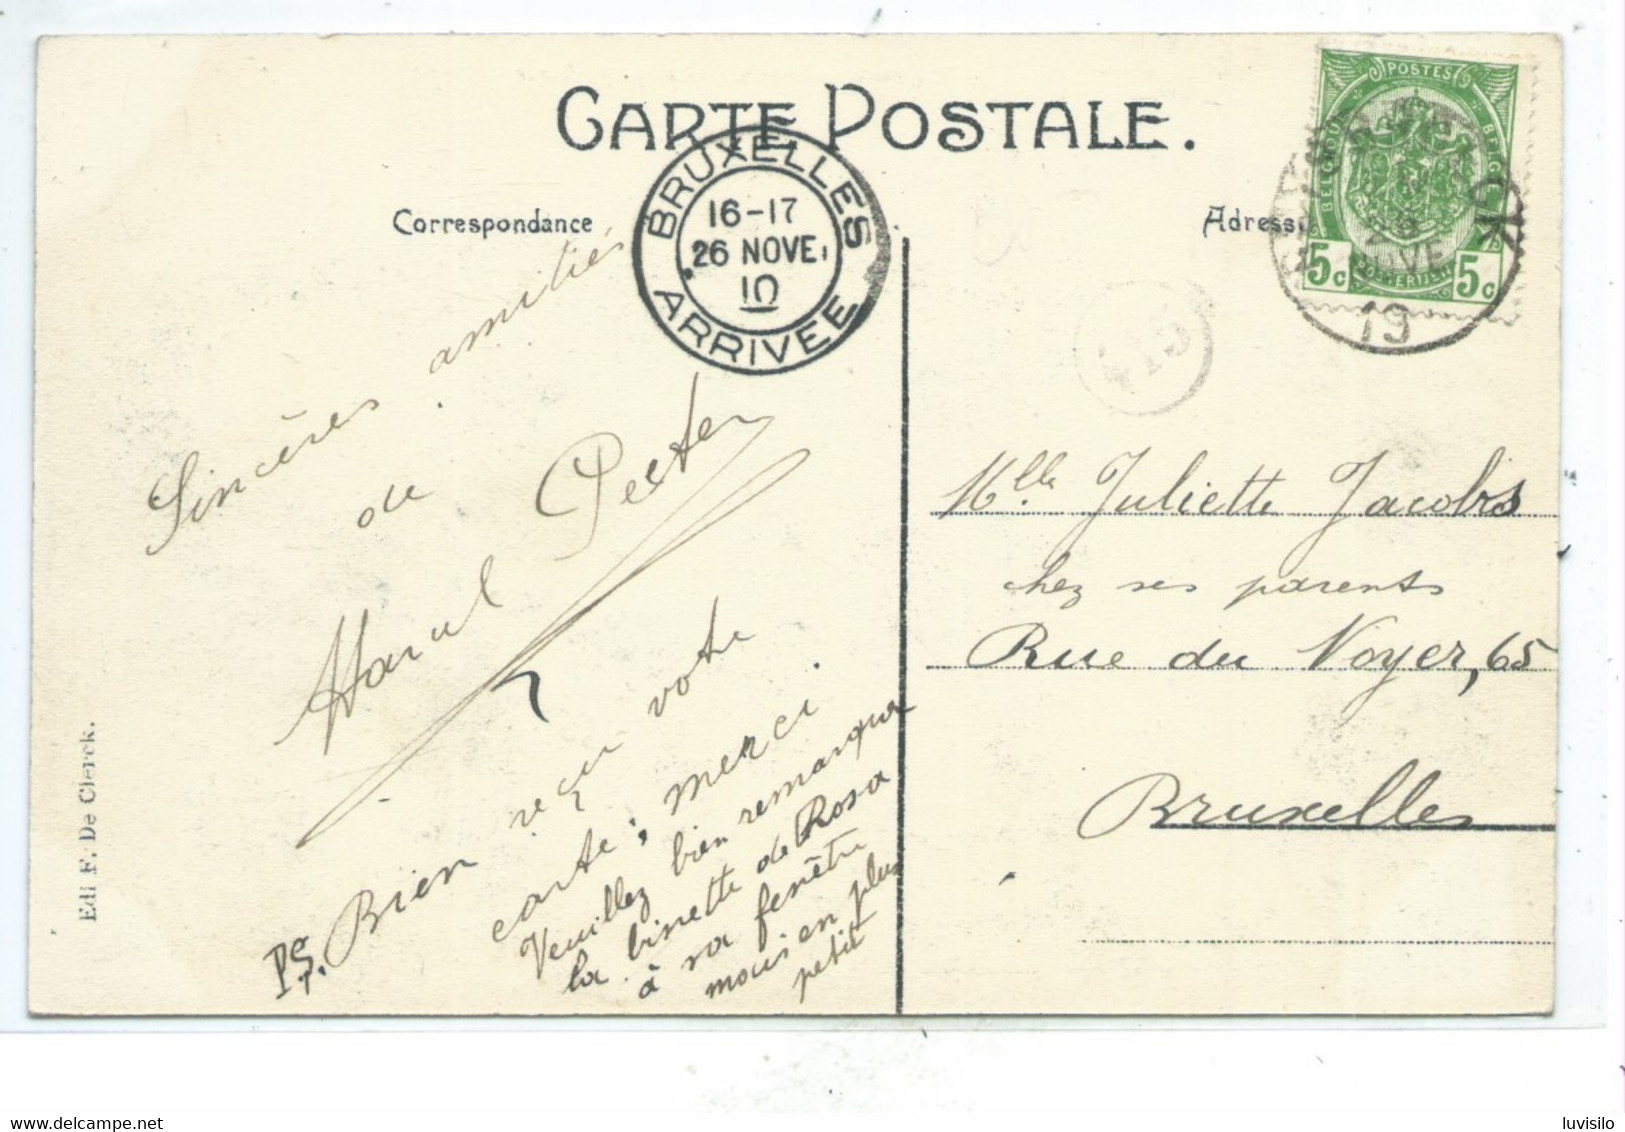 CARTE POSTALE.
Correspondance
Adresse
BRUXELLES
16-17
26 NOVE.
10
ARRIVEE
POSTES
BELGIQUE
BELGIË
5c
5c
POSTERIJEN
CK
19
Sincères amitiés
de
Marcel Peeters
PS. Bien reçu votre
carte; merci.
Veuillez bien remarquer
la binette de Rosa
à sa fenêtre
mais en plus
petit
Mlle Juliette Jacobs
chez ses parents
Rue du Noyer, 65
Bruxelles
Edi F. De Clerck.
luvisilo